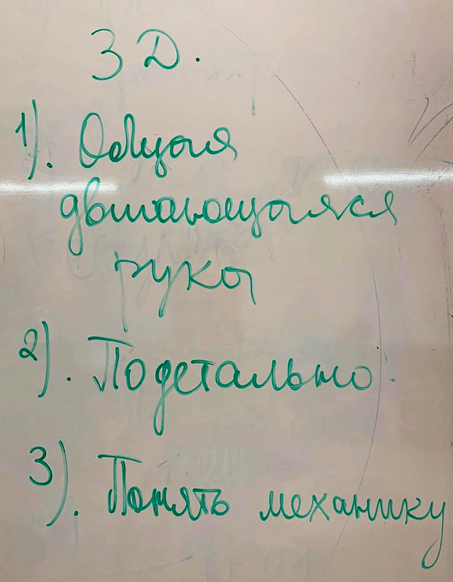 3Д.
1). Общая
двигающаяся
рука
2). Подетально
3). Понять механику